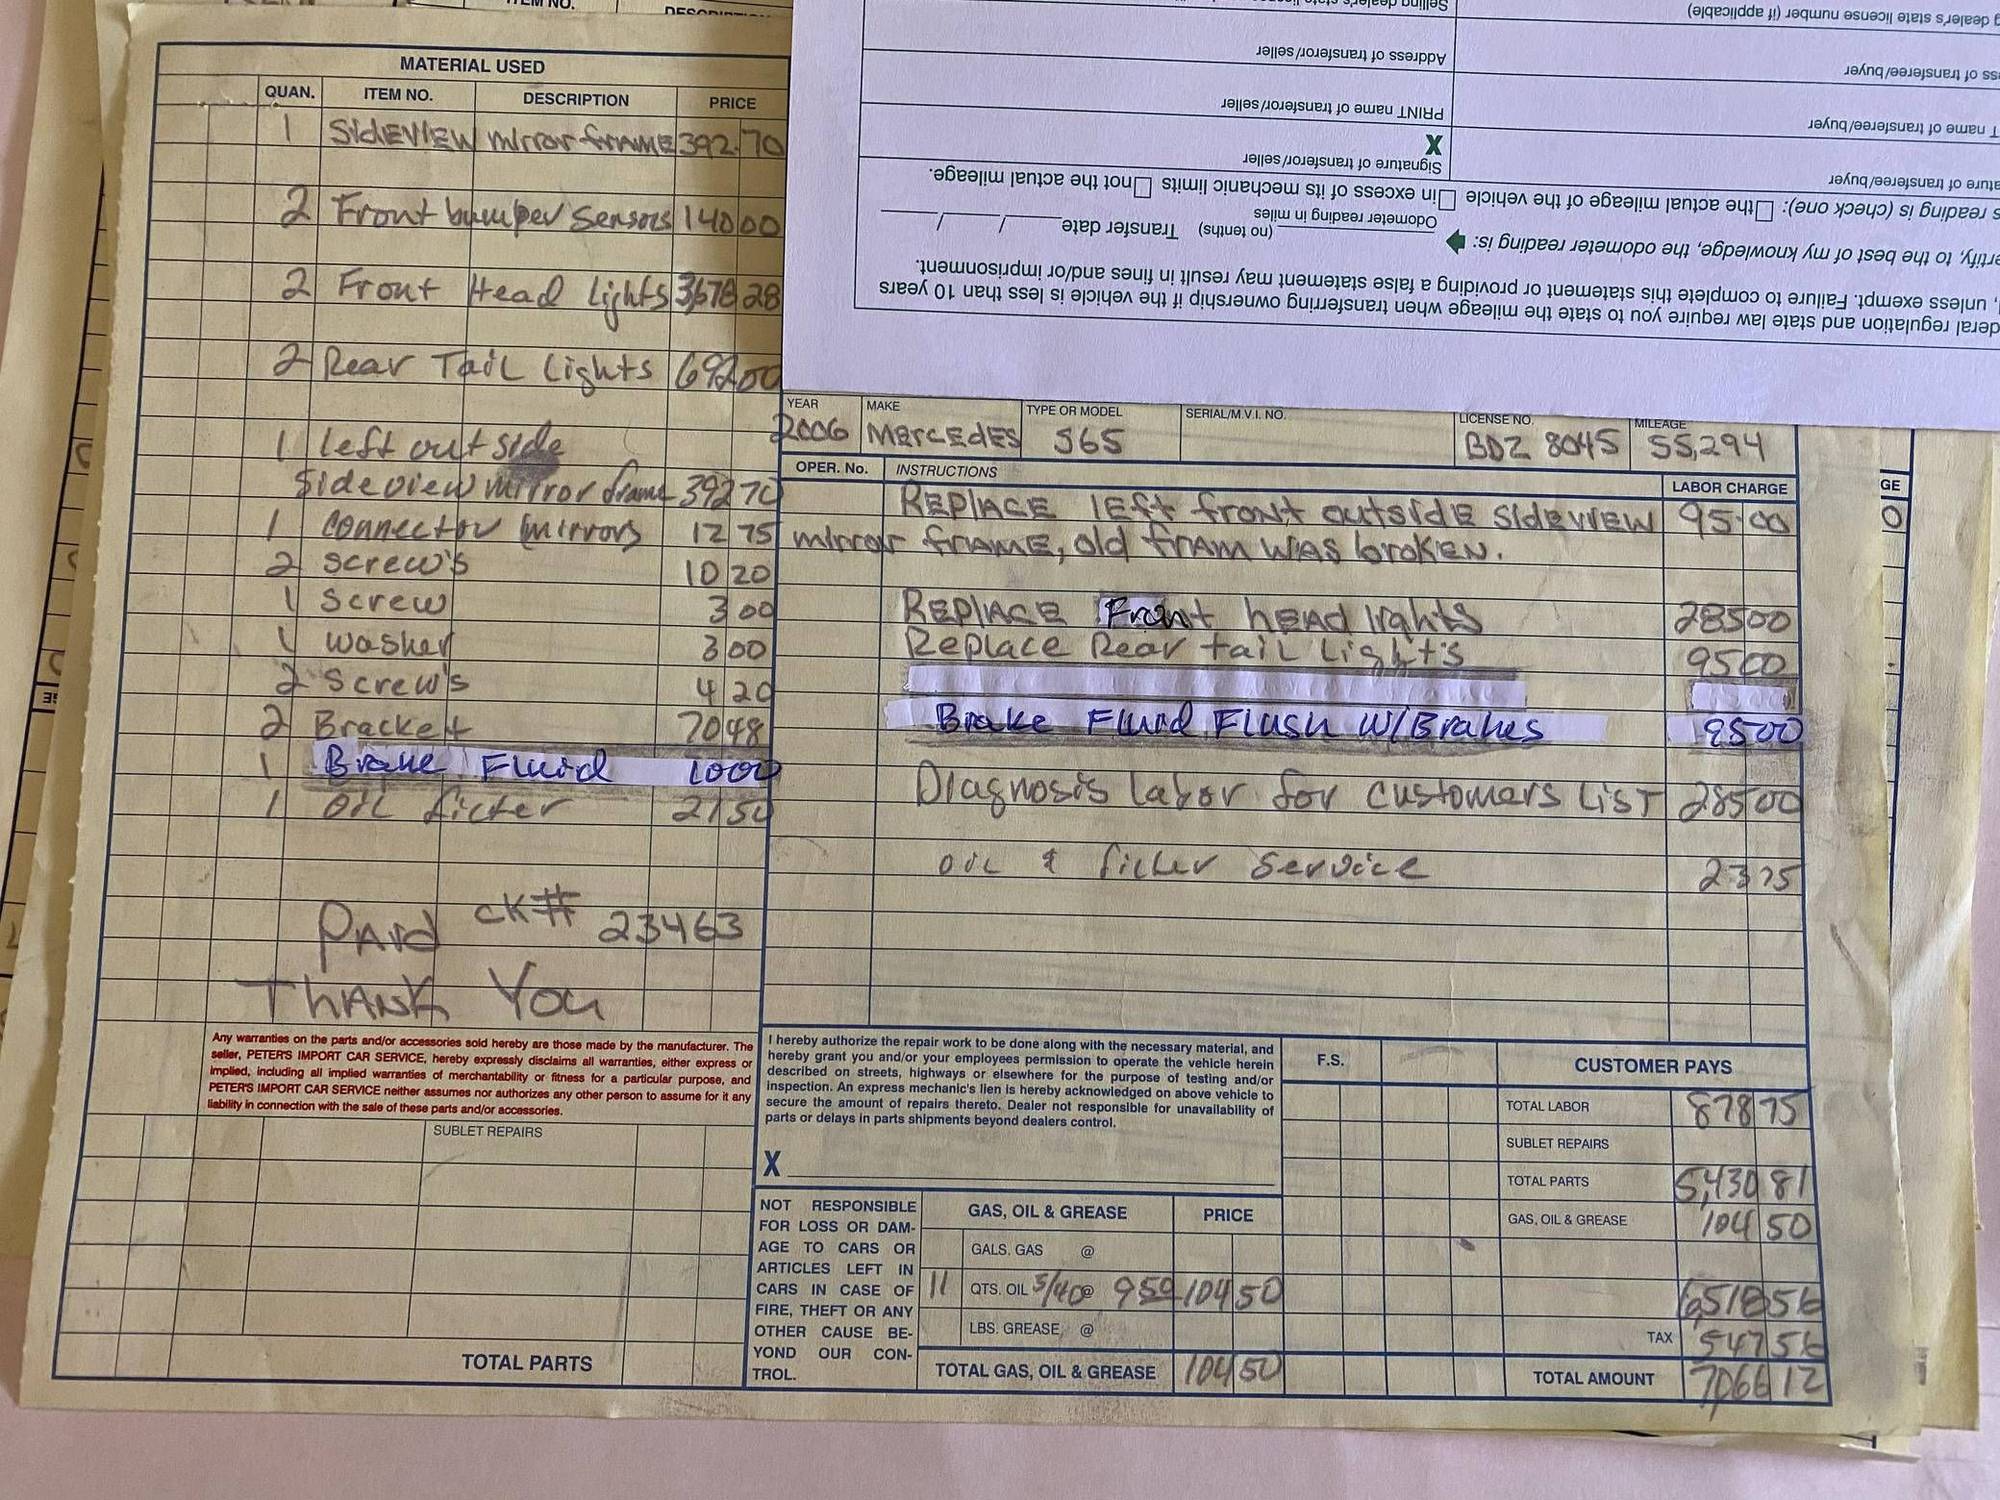 ITEM NO.
MATERIAL USED
QUAN. ITEM NO. DESCRIPTION PRICE
1 SidEVIEW mirror frAME 392.70
2 Front bumper Sensors 140 00
2 Front Head Lights 3678 28
2 Rear Tail Lights 692 00
1 left out side
Sideview mirror frame 392 70
1 connector (mirrors 12 75
2 Screw's 10 20
1 Screw 3 00
1 washer 3 00
2 Screw's 4 20
2 Bracket 70 48
1 Brake Fluid 10 00
1 oil filter 21 50
PAid CK# 23463
THANK You
Any warranties on the parts and/or accessories sold hereby are those made by the manufacturer. The
seller, PETER'S IMPORT CAR SERVICE, hereby expressly disclaims all warranties, either express or
implied, including all implied warranties of merchantability or fitness for a particular purpose, and
PETER'S IMPORT CAR SERVICE neither assumes nor authorizes any other person to assume for it any
liability in connection with the sale of these parts and/or accessories.
SUBLET REPAIRS
TOTAL PARTS
dealer's state license number (if applicable)
Address of transferor/seller
of transferee/buyer
PRINT name of transferor/seller
name of transferee/buyer
X
Signature of transferor/seller
of transferee/buyer
reading is (check one): ☐ the actual mileage of the vehicle ☐ in excess of its mechanic limits ☐ not the actual mileage.
Odometer reading in miles
to the best of my knowledge, the odometer reading is: (no tenths) Transfer date / /
unless exempt. Failure to complete this statement or providing a false statement may result in fines and/or imprisonment.
regulation and state law require you to state the mileage when transferring ownership if the vehicle is less than 10 years
YEAR MAKE TYPE OR MODEL SERIAL/M.V.I. NO. LICENSE NO. MILEAGE
2006 MErcEdES S65 BDZ 8045 55,294
OPER. No. INSTRUCTIONS LABOR CHARGE
REPlACE lEft front outsidE SidEVIEW 95.00
mirror frAME, old frAM WAS brokEN.
REPlACE Front hEAd lights 285 00
Replace Rear tail Light's 95 00
Brake Fluid Flush W/Brakes 95 00
Diagnosis labor for customers List 285 00
oil & filter service 23 75
I hereby authorize the repair work to be done along with the necessary material, and
hereby grant you and/or your employees permission to operate the vehicle herein
described on streets, highways or elsewhere for the purpose of testing and/or
inspection. An express mechanic's lien is hereby acknowledged on above vehicle to
secure the amount of repairs thereto. Dealer not responsible for unavailability of
parts or delays in parts shipments beyond dealers control.
X
NOT RESPONSIBLE
FOR LOSS OR DAM-
AGE TO CARS OR
ARTICLES LEFT IN
CARS IN CASE OF
FIRE, THEFT OR ANY
OTHER CAUSE BE-
YOND OUR CON-
TROL.
GAS, OIL & GREASE PRICE
GALS. GAS @
11 QTS. OIL 5/40 @ 9 50 104 50
LBS. GREASE @
TOTAL GAS, OIL & GREASE 104 50
F.S. CUSTOMER PAYS
TOTAL LABOR 878 75
SUBLET REPAIRS
TOTAL PARTS 5,430 81
GAS, OIL & GREASE 104 50
6,518 56
TAX 547 56
TOTAL AMOUNT 7,066 12